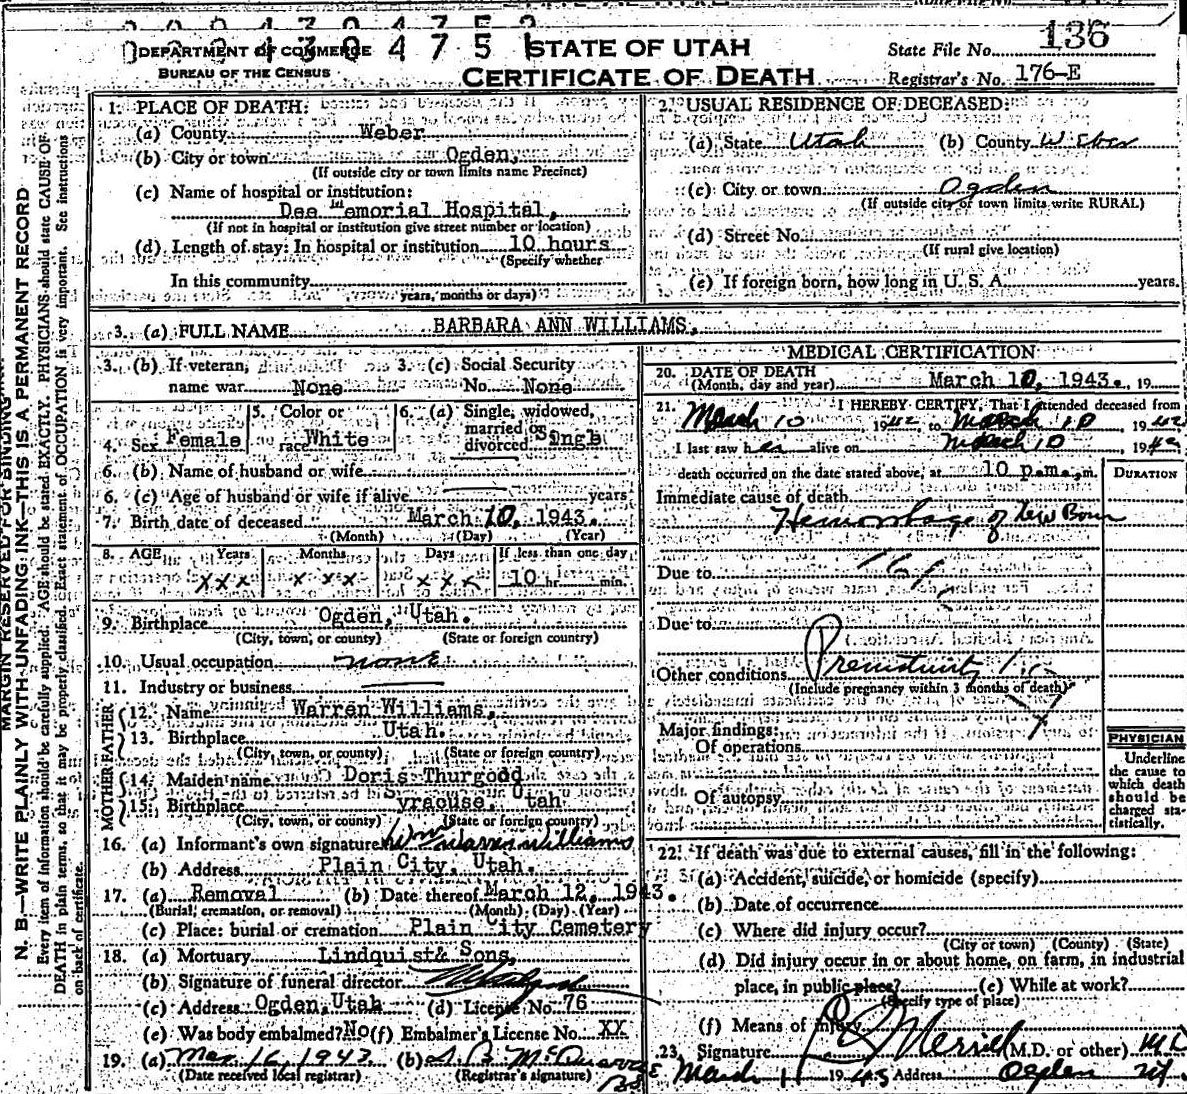 0 0 0 4 3 0 4 7 5 1
DEPARTMENT OF COMMERCE
BUREAU OF THE CENSUS
STATE OF UTAH
CERTIFICATE OF DEATH
State File No. 136
Registrar's No. 176-E
MARGIN RESERVED FOR BINDING
N. B.—WRITE PLAINLY WITH UNFADING INK—THIS IS A PERMANENT RECORD
Every item of information should be carefully supplied. AGE should be stated EXACTLY. PHYSICIANS should state CAUSE OF
DEATH in plain terms, so that it may be properly classified. Exact statement of OCCUPATION is very important. See instructions
on back of certificate.
1. PLACE OF DEATH:
(a) County Weber
(b) City or town Ogden,
(If outside city or town limits name Precinct)
(c) Name of hospital or institution:
Dee Memorial Hospital,
(If not in hospital or institution give street number or location)
(d) Length of stay: In hospital or institution 10 hours
(Specify whether
In this community
years, months or days)
2. USUAL RESIDENCE OF DECEASED:
(a) State Utah (b) County Weber
(c) City or town Ogden
(If outside city or town limits write RURAL)
(d) Street No.
(If rural give location)
(e) If foreign born, how long in U. S. A. years.
3. (a) FULL NAME BARBARA ANN WILLIAMS,
3. (b) If veteran, 3. (c) Social Security
name war None No. None
4. Sex Female 5. Color or race White 6. (a) Single, widowed, married or divorced Singl
6. (b) Name of husband or wife
6. (c) Age of husband or wife if alive years
7. Birth date of deceased March 10, 1943.
(Month) (Day) (Year)
8. AGE Years Months Days If less than one day
xxx xxx xxx 10 hr. min.
9. Birthplace Ogden, Utah.
(City, town, or county) (State or foreign country)
10. Usual occupation none
11. Industry or business
FATHER
12. Name Warren Williams,
13. Birthplace Utah.
(City, town, or county) (State or foreign country)
MOTHER
14. Maiden name Doris Thurgood
15. Birthplace Syraouse, Utah
(City, town, or county) (State or foreign country)
16. (a) Informant's own signature Wm Warren Williams
(b) Address Plain City, Utah.
17. (a) Removal (b) Date thereof March 12, 1943.
(Burial, cremation, or removal) (Month) (Day) (Year)
(c) Place: burial or cremation Plain City Cemetery
18. (a) Mortuary Lindquist& Sons,
(b) Signature of funeral director
(c) Address Ogden,Utah (d) License No. 76
(e) Was body embalmed? No (f) Embalmer's License No. XX
19. (a) Mar 16, 1943 (b)
(Date received local registrar) (Registrar's signature)
MEDICAL CERTIFICATION
20. DATE OF DEATH
(Month, day and year) March 10, 1943., 19
21. I HEREBY CERTIFY, That I attended deceased from
March 10, 19 to March 10, 19
I last saw her alive on March 10, 19
death occurred on the date stated above, at 10 p.m., m.
DURATION
Immediate cause of death
Hemorrhage of New Born
Due to
Due to
Other conditions Prematurity
(Include pregnancy within 3 months of death)
Major findings:
Of operations
Of autopsy
PHYSICIAN
Underline
the cause to
which death
should be
charged sta-
tistically.
22. If death was due to external causes, fill in the following:
(a) Accident, suicide, or homicide (specify)
(b) Date of occurrence
(c) Where did injury occur?
(City or town) (County) (State)
(d) Did injury occur in or about home, on farm, in industrial
place, in public place? (e) While at work?
(Specify type of place)
(f) Means of injury
23. Signature Merrill (M.D. or other) MD
March 11 1943 Address Ogden Ut.